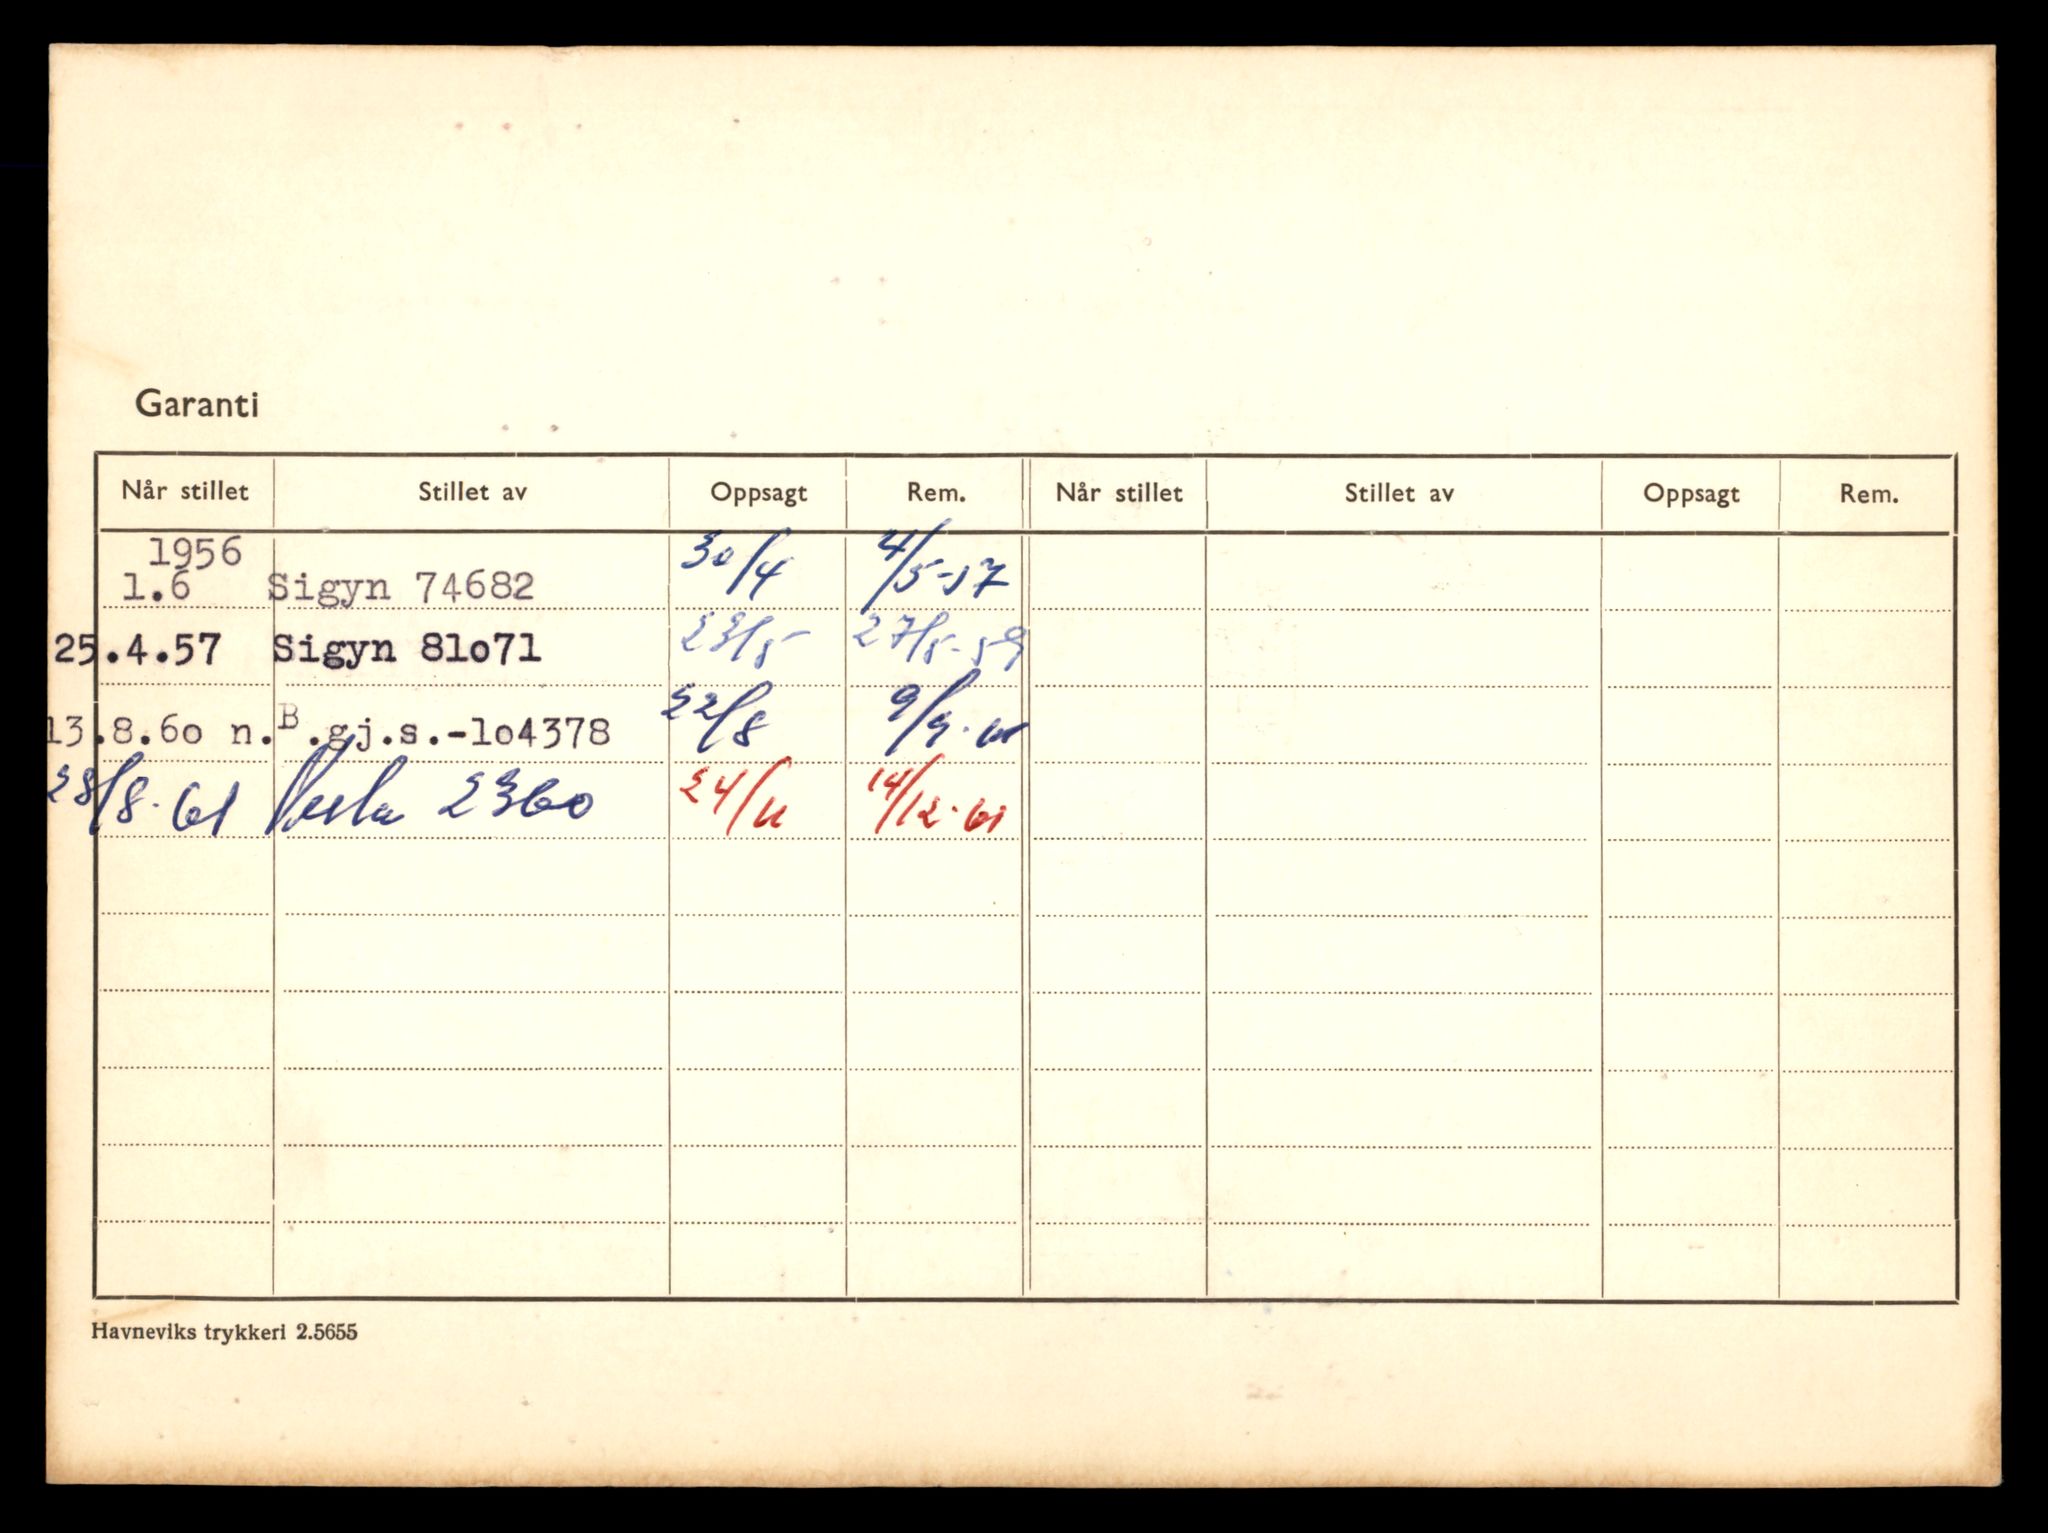 Garanti
Når stillet Stillet av Oppsagt Rem. Når stillet Stillet av Oppsagt Rem.
1956
1.6 Sigyn 74682 30/4 4/5-57
25.4.57 Sigyn 81o71 23/5 27/5-59
13.8.6o n.B.gj.s.-1o4378 22/8 9/9.61
28/8.61 Vesta 2360 24/11 14/12.61
Havneviks trykkeri 2.5655